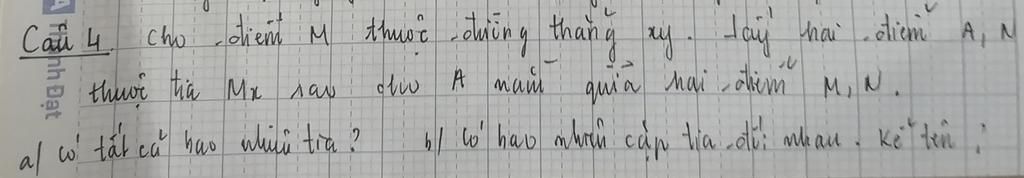 Câu 4. Cho điểm M thuộc đường thẳng xy. Lấy hai điểm A, N
thuộc tia Mx sao cho A nằm giữa hai điểm M, N.
a/ Có tất cả bao nhiêu tia? b/ Có bao nhiêu cặp tia đối nhau. Kể tên ?
Thành Đạt